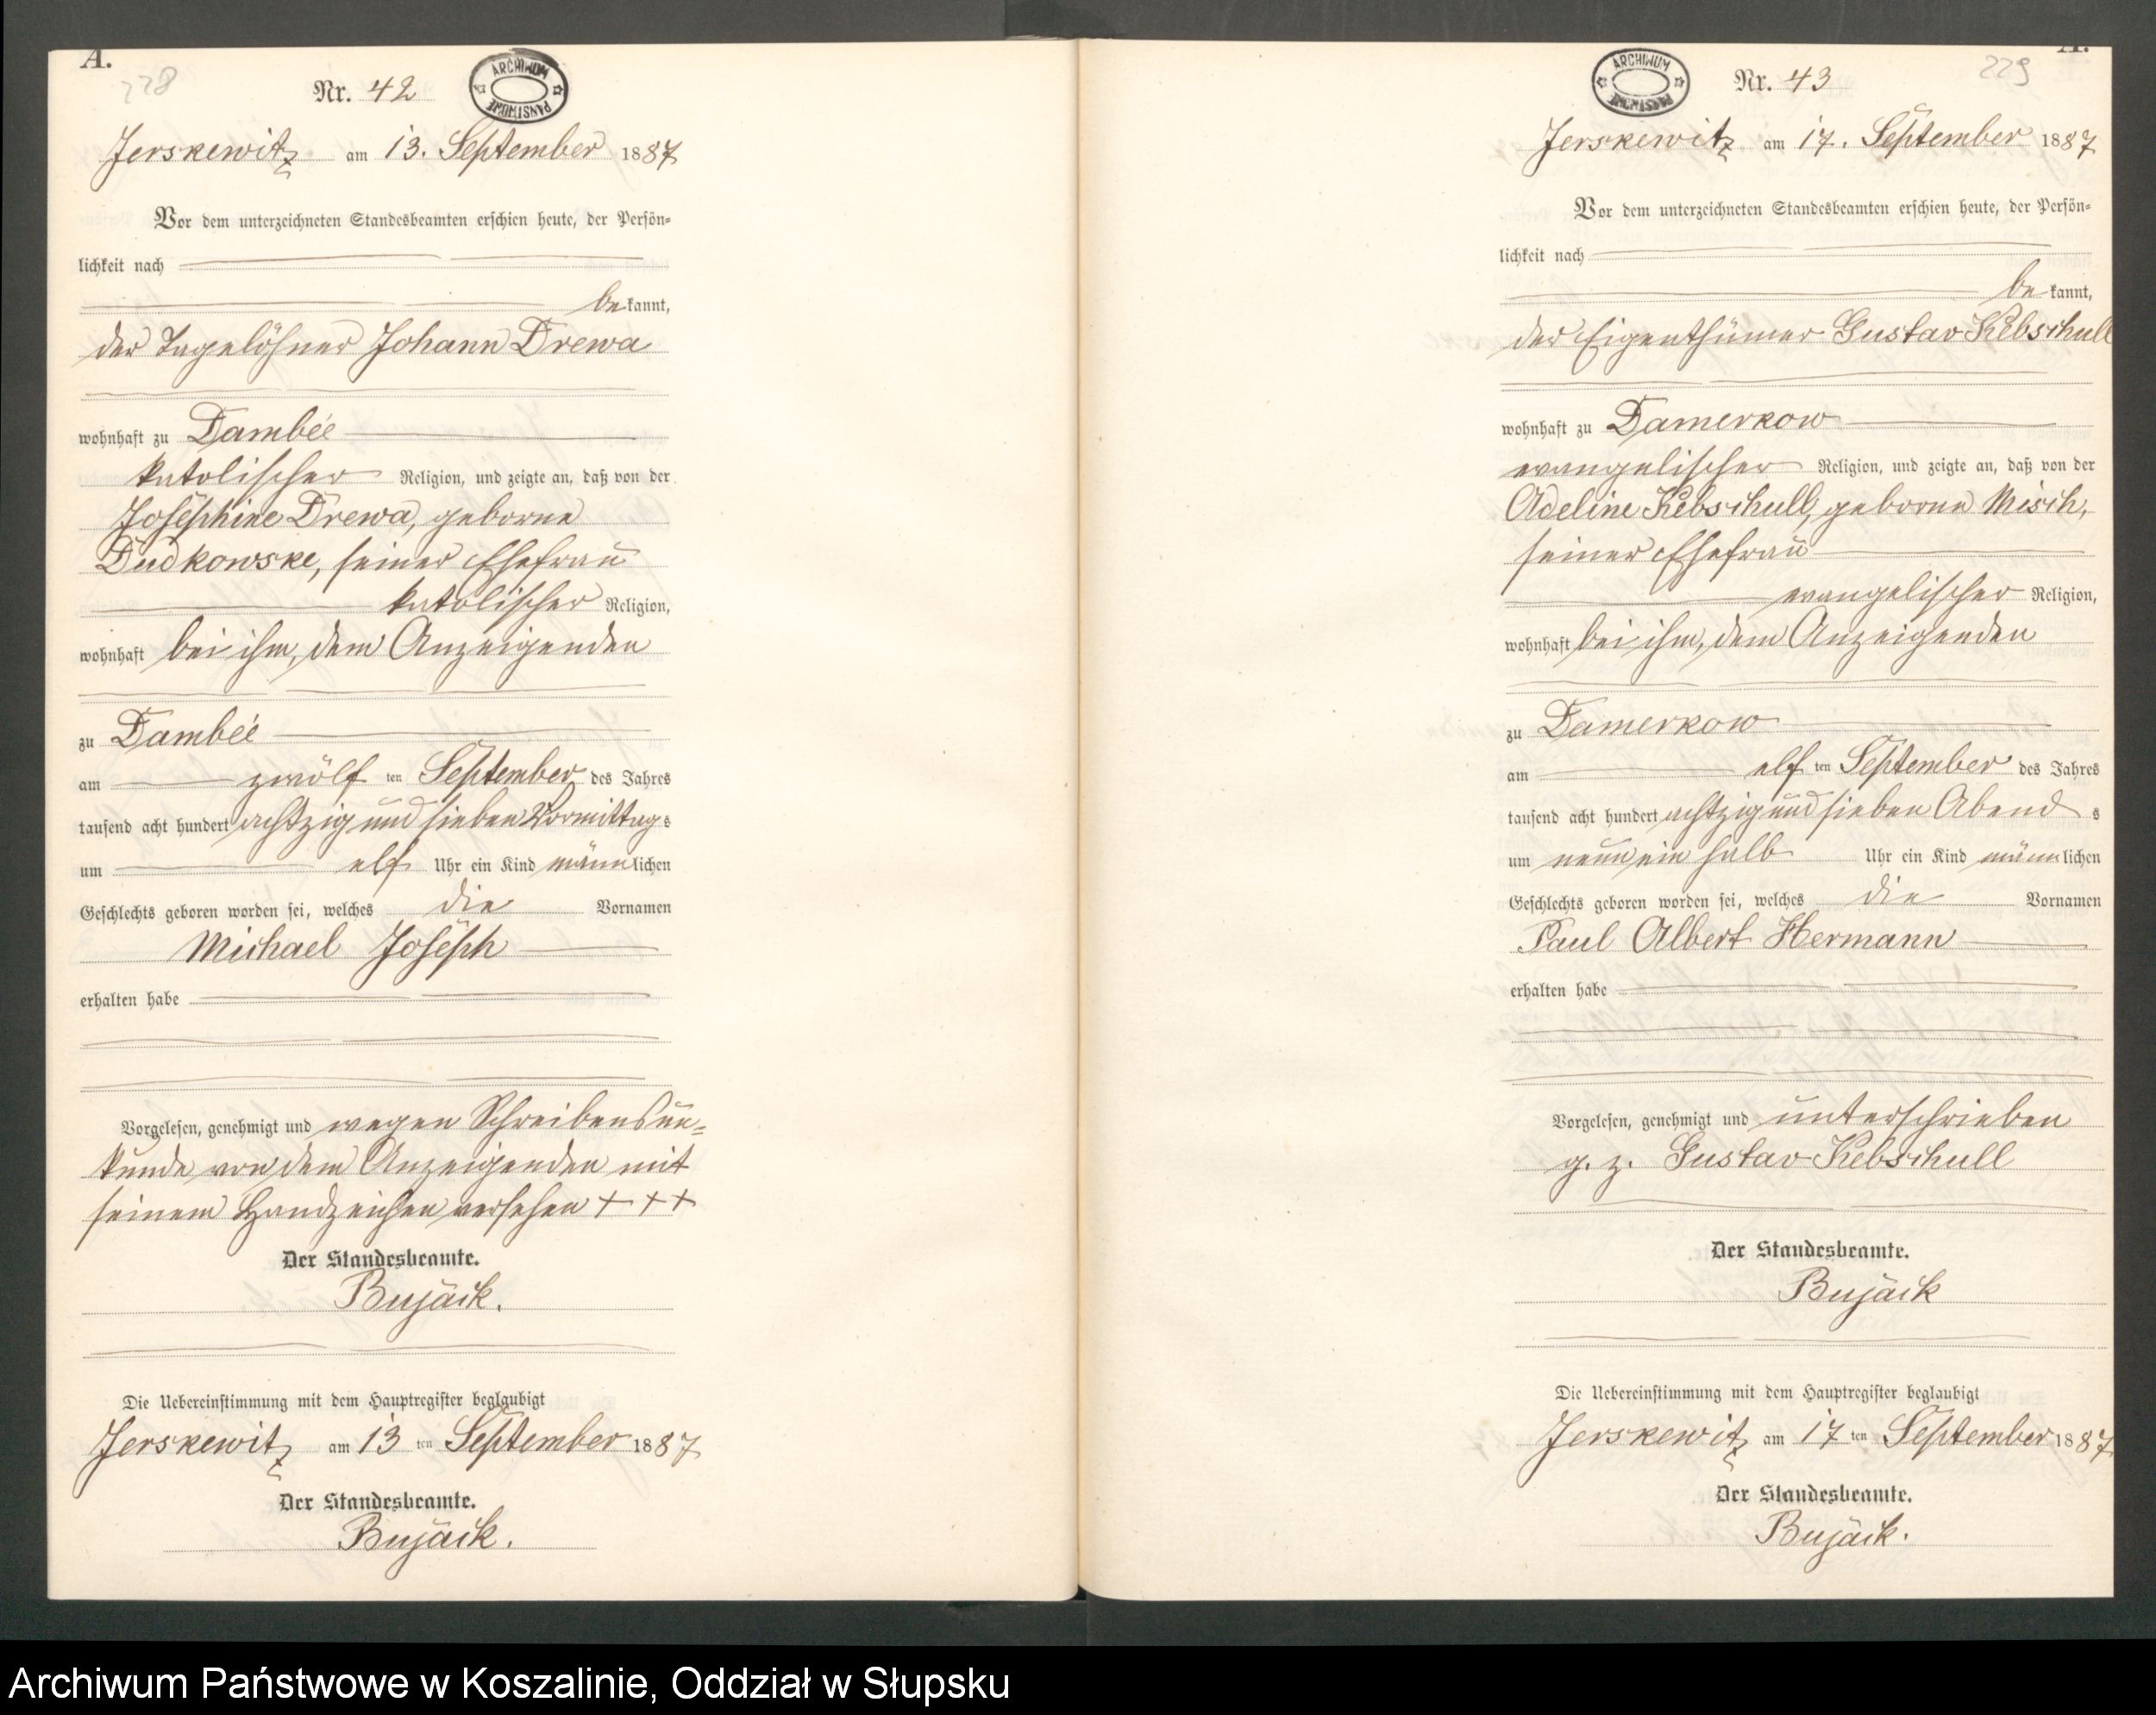 A.
228
Nr. 42
ARCHIWUM PAŃSTWOWE
Jerskewitz am 13. September 1887
Vor dem unterzeichneten Standesbeamten erschien heute, der Persön-
lichkeit nach
bekannt,
der Tagelöhner Johann Drewa
wohnhaft zu Dambée
katolischer Religion, und zeigte an, daß von der
Josephine Drewa, geborne
Dudkowske, seiner Ehefrau
katolischer Religion,
wohnhaft bei ihm, dem Anzeigenden
zu Dambée
am zwölf ten September des Jahres
tausend acht hundert achtzig und sieben Vormittags
um elf Uhr ein Kind männlichen
Geschlechts geboren worden sei, welches die Vornamen
Michael Joseph
erhalten habe
Vorgelesen, genehmigt und wegen Schreibensun-
kunde von dem Anzeigenden mit
seinem Handzeichen versehen + + +
Der Standesbeamte.
Bujack.
Die Uebereinstimmung mit dem Hauptregister beglaubigt
Jerskewitz am 13 ten September 1887
Der Standesbeamte.
Bujack.
A.
229
ARCHIWUM PAŃSTWOWE
Nr. 43
Jerskewitz am 17. September 1887
Vor dem unterzeichneten Standesbeamten erschien heute, der Persön-
lichkeit nach
bekannt,
der Eigenthümer Gustav Kebschull
wohnhaft zu Damerkow
evangelischer Religion, und zeigte an, daß von der
Adeline Kebschull, geborne Misch,
seiner Ehefrau
evangelischer Religion,
wohnhaft bei ihm, dem Anzeigenden
zu Damerkow
am elf ten September des Jahres
tausend acht hundert achtzig und sieben Abends
um neun ein halb Uhr ein Kind männlichen
Geschlechts geboren worden sei, welches die Vornamen
Paul Albert Hermann
erhalten habe
Vorgelesen, genehmigt und unterschrieben
g. z. Gustav Kebschull
Der Standesbeamte.
Bujack
Die Uebereinstimmung mit dem Hauptregister beglaubigt
Jerskewitz am 17 ten September 1887
Der Standesbeamte.
Bujack.
Archiwum Państwowe w Koszalinie, Oddział w Słupsku